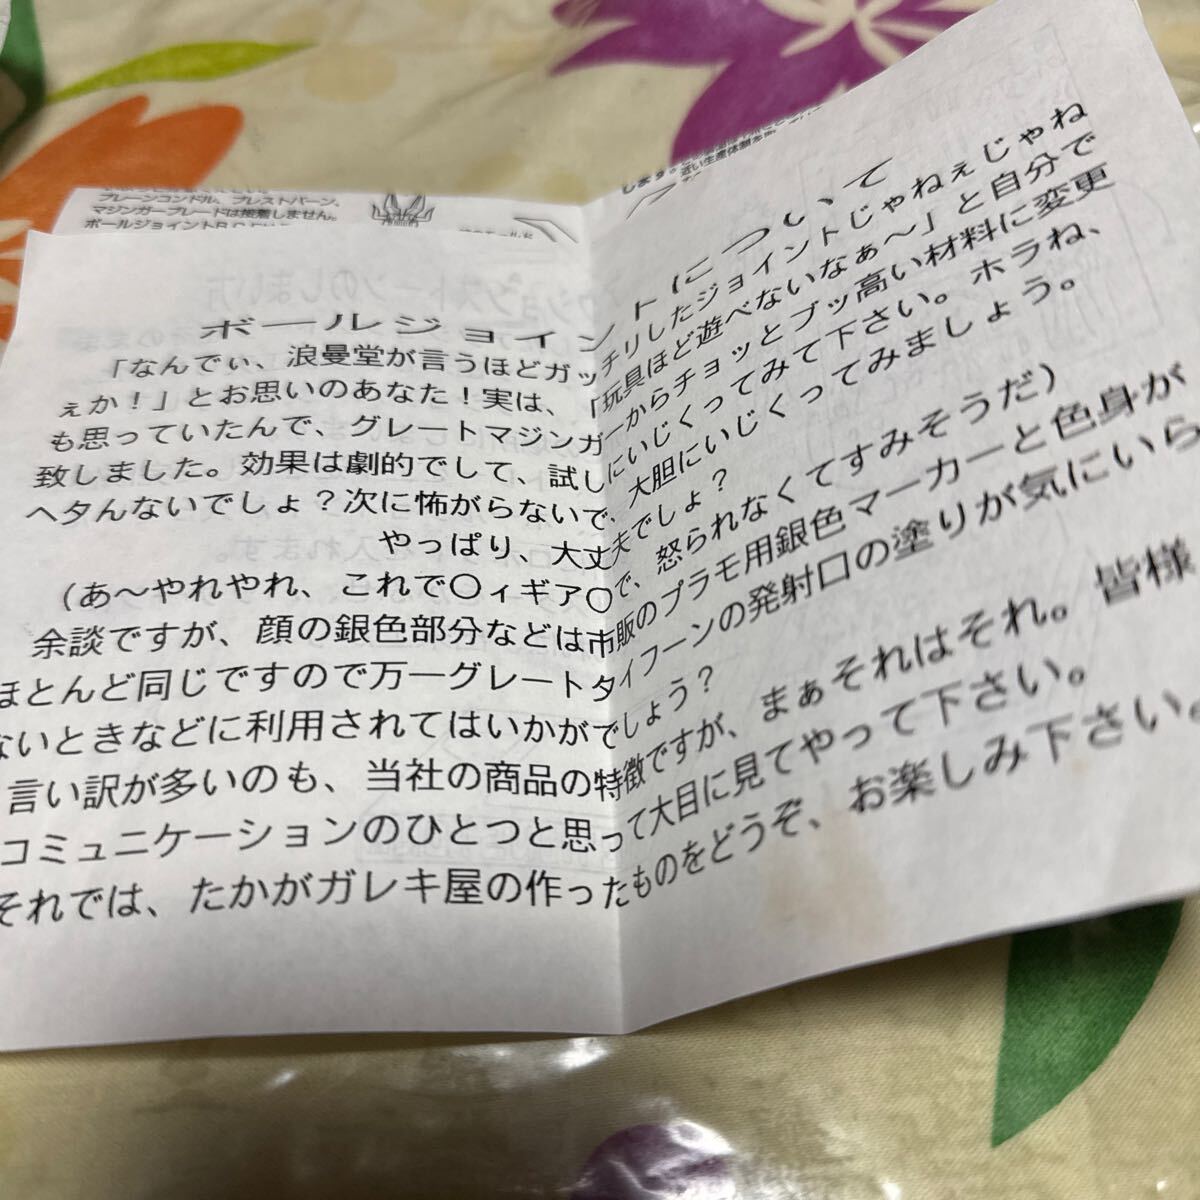 ブレーンコンドル、ブレストバーン、
マジンガーブレードは接着しません。
ボールジョイント
します。
近い生産体制を
ボールジョイントについて
「なんでぃ、浪曼堂が言うほどガッチリしたジョイントじゃねぇじゃね
ぇか！」とお思いのあなた！実は、「玩具ほど遊べないなぁ〜」と自分で
も思っていたんで、グレートマジンガーからチョッとブッ高い材料に変更
致しました。効果は劇的でして、試しにいじくってみて下さい。ホラね、
ヘタんないでしょ？次に怖がらないで、大胆にいじくってみましょう。
やっぱり、大丈夫でしょ？
（あ〜やれやれ、これで〇ィギア〇で、怒られなくてすみそうだ）
余談ですが、顔の銀色部分などは市販のプラモ用銀色マーカーと色身が
ほとんど同じですので万一グレートタイフーンの発射口の塗りが気にいら
ないときなどに利用されてはいかがでしょう？
言い訳が多いのも、当社の商品の特徴ですが、まぁそれはそれ。皆様
コミュニケーションのひとつと思って大目に見てやって下さい。
それでは、たかがガレキ屋の作ったものをどうぞ、お楽しみ下さい。